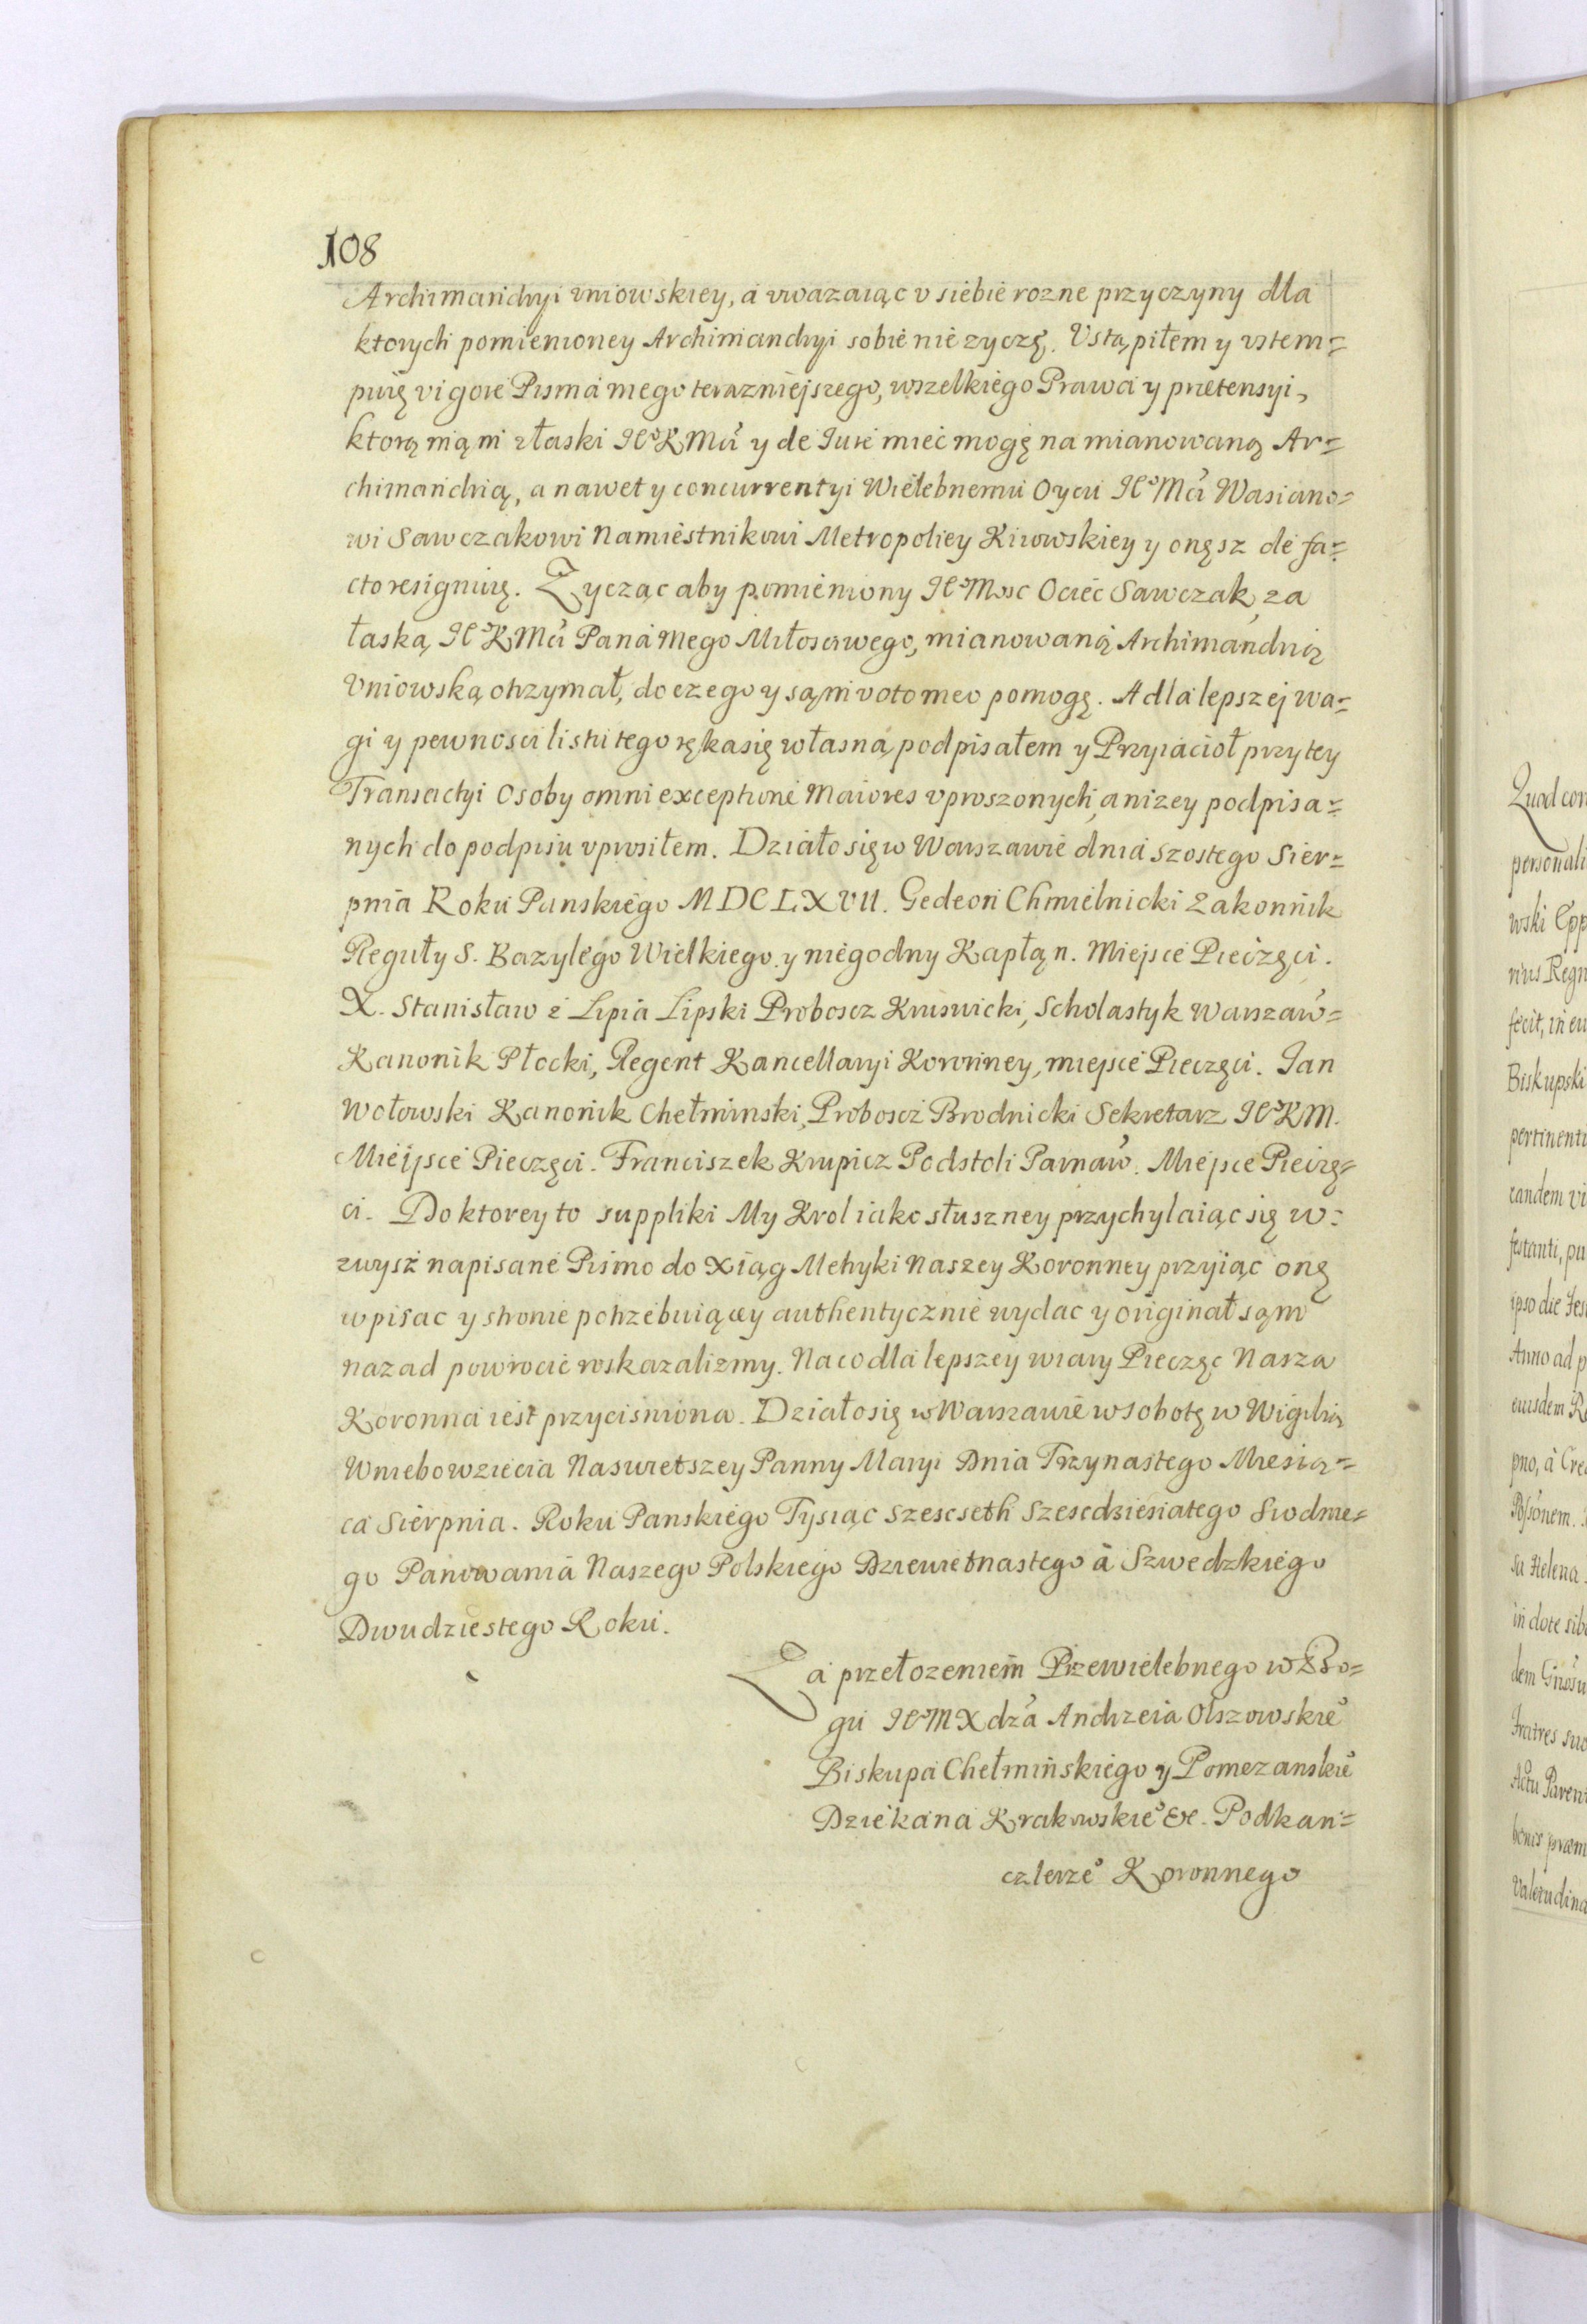 108
Archimandryi Vniowskiey, a vwazaiąc v siebie rozne przyczyny dla
ktorych pomienioney Archimandryi sobie nie zyczę. Vstąpiłem y vstem=
puię vigore Pisma mego terazniejszego, wszelkiego Prawa y prætensyi,
ktorą mąm z łaski JKoKMci y de Iure miec mogę na mianowaną Ar=
chimandrią, a nawet y concurrentyi Wielebnemu Oycu Je°Mci Wasiano=
wi Sawczakowi Namiestnikowi Metropoliey Kiiowskiey y onęsz de fa=
cto resignuię. Zycząc aby pomieniony Je°Mosc Ociec Sawczak za
łaską Je°KMci Pana Mego Miłosciwego, mianowaną Archimandrią
Vniowską otrzymał, do czego y sąm voto meo pomogę. A dla lepszej wa=
gi y pewnosci listu tego ręką się własną podpisałem y Przyiacioł przy tey
Transactyi Osoby omni exceptione Maiores vproszonych, a nizey podpisa=
nych do podpisu vprosiłem. Działo się w Warszawie dnia szostego Sier=
pnia Roku Panskiego MDCLXVII. Gedeon Chmielnicki Zakonnik
Reguły S. Bazylego Wielkiego y niegodny Kapłąn. Miejsce Pieczęci.
X. Stanisław z Lipia Lipski Proboscz Kruswicki, Scholastyk Warszaw=
Kanonik Płocki, Regent Kancellaryi Koronney, miejsce Pieczęci. Jan
Wołowski Kanonik Chełminski, Proboscz Brodnicki Sekretarz Je°KM.
Miejsce Pieczęci. Franciszek Krupicz Podstoli Parnaw. Miejsce Pieczę=
ci. Do ktorey to suppliki My Krol iako słuszney przychylaiąc się w=
zwysz napisane Pismo do Xiąg Metryki Naszey Koronney przyiąc onę
wpisac y stronie potrzebuiącey authentycznie wydac y originał sąm
nazad powrocic roskazalizmy. Na co dla lepszey wiary Pieczęc Nasza
Koronna iest przycisniona. Działo się w Warszawie w Sobotę w Wigilią
Wniebowziecia Naswietszey Panny Maryi Dnia Trzynastego Miesią=
ca Sierpnia. Roku Panskiego Tysiąc szescseth szescdziesiatego Siodme=
go Panowania Naszego Polskiego Dziewietnastego a Szwedzkiego
Dwudziestego Roku.
Za przełozeniem Przewielebnego w Bo=
gu Je°M Xdza Andrzeia Olszowskie°
Biskupa Chełmińskiego y Pomezanskie°
Dziekana Krakowskie° &c. Podkan=
clerze° Koronnego
Quod con
personali
wski Epp
nius Regn
fecit, in eu
Biskupski
pertinenti
eandem vi
festanti, pu
ipso die Fes
Anno ad p
eiusdem Re
pno, à Cre
su Helena
in dote sib
Fratres suo
Actu Paren
bonis præm
Valetudina